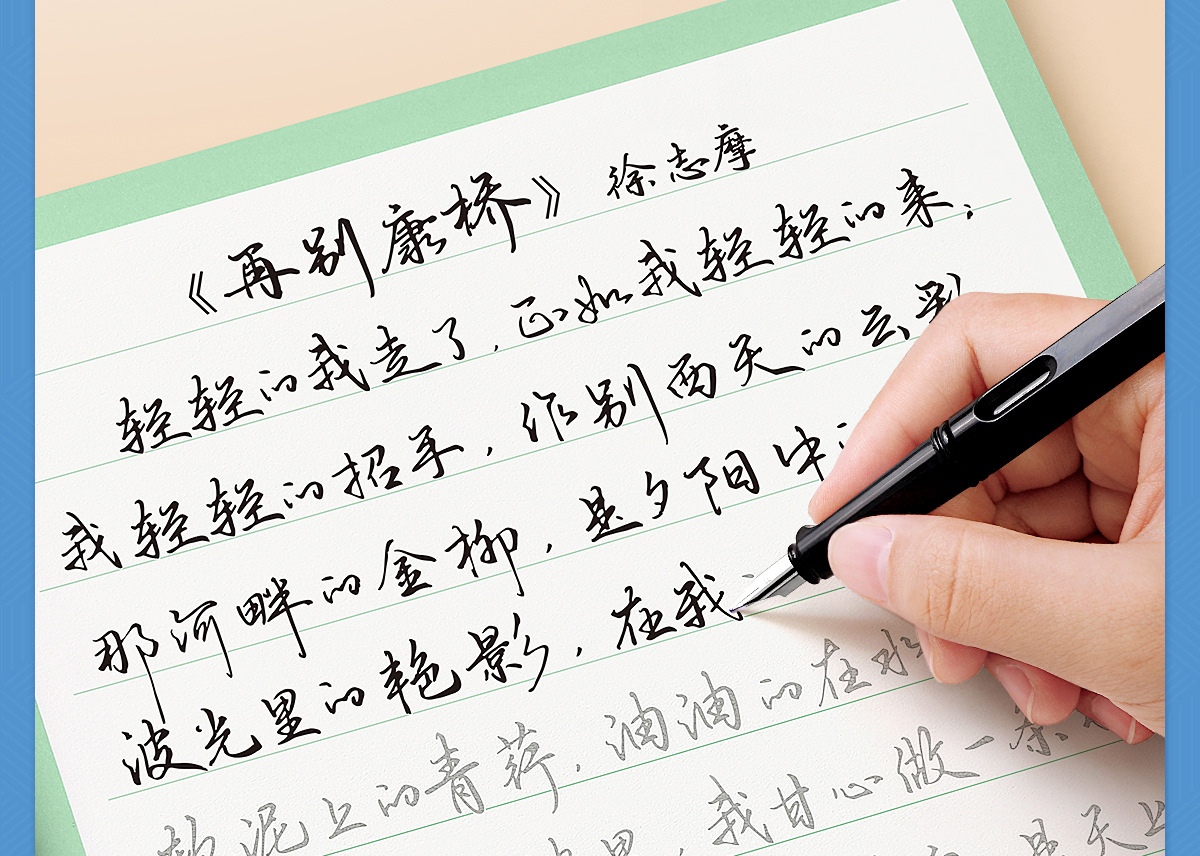 《再别康桥》 徐志摩
轻轻的我走了,正如我轻轻的来;
我轻轻的招手,作别西天的云彩
那河畔的金柳,是夕阳中
波光里的艳影,在我
软泥上的青荇,油油的在水
里,我甘心做一条
是天上